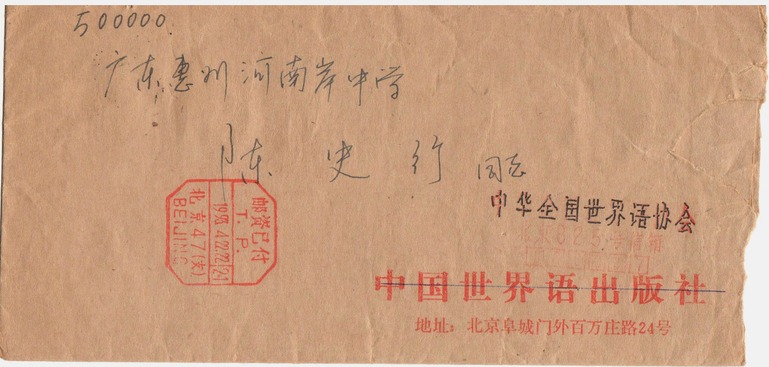 500000
广东惠州河南岸中学
陈史行 同志
中华全国世界语协会
中国世界语出版社
地址：北京阜城门外百万庄路24号
邮资已付
T. P.
北京47(支)
BEIJING